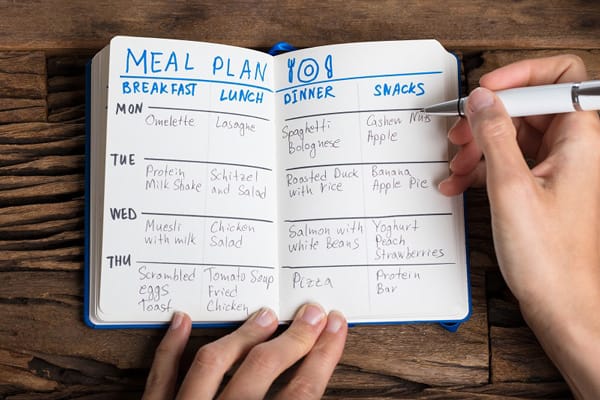 MEAL PLAN
BREAKFAST
LUNCH
DINNER
SNACKS
MON
Omelette
Lasagne
Spaghetti
Bolognese
Cashew Nuts
Apple
TUE
Protein
Milk Shake
Schitzel
and Salad
Roasted Duck
with Rice
Banana
Apple Pie
WED
Muesli
with milk
Chicken
Salad
Salmon with
white Beans
Yoghurt
Peach
Strawberries
THU
Scrambled
eggs
Toast
Tomato Soup
Fried
Chicken
Pizza
Protein
Bar